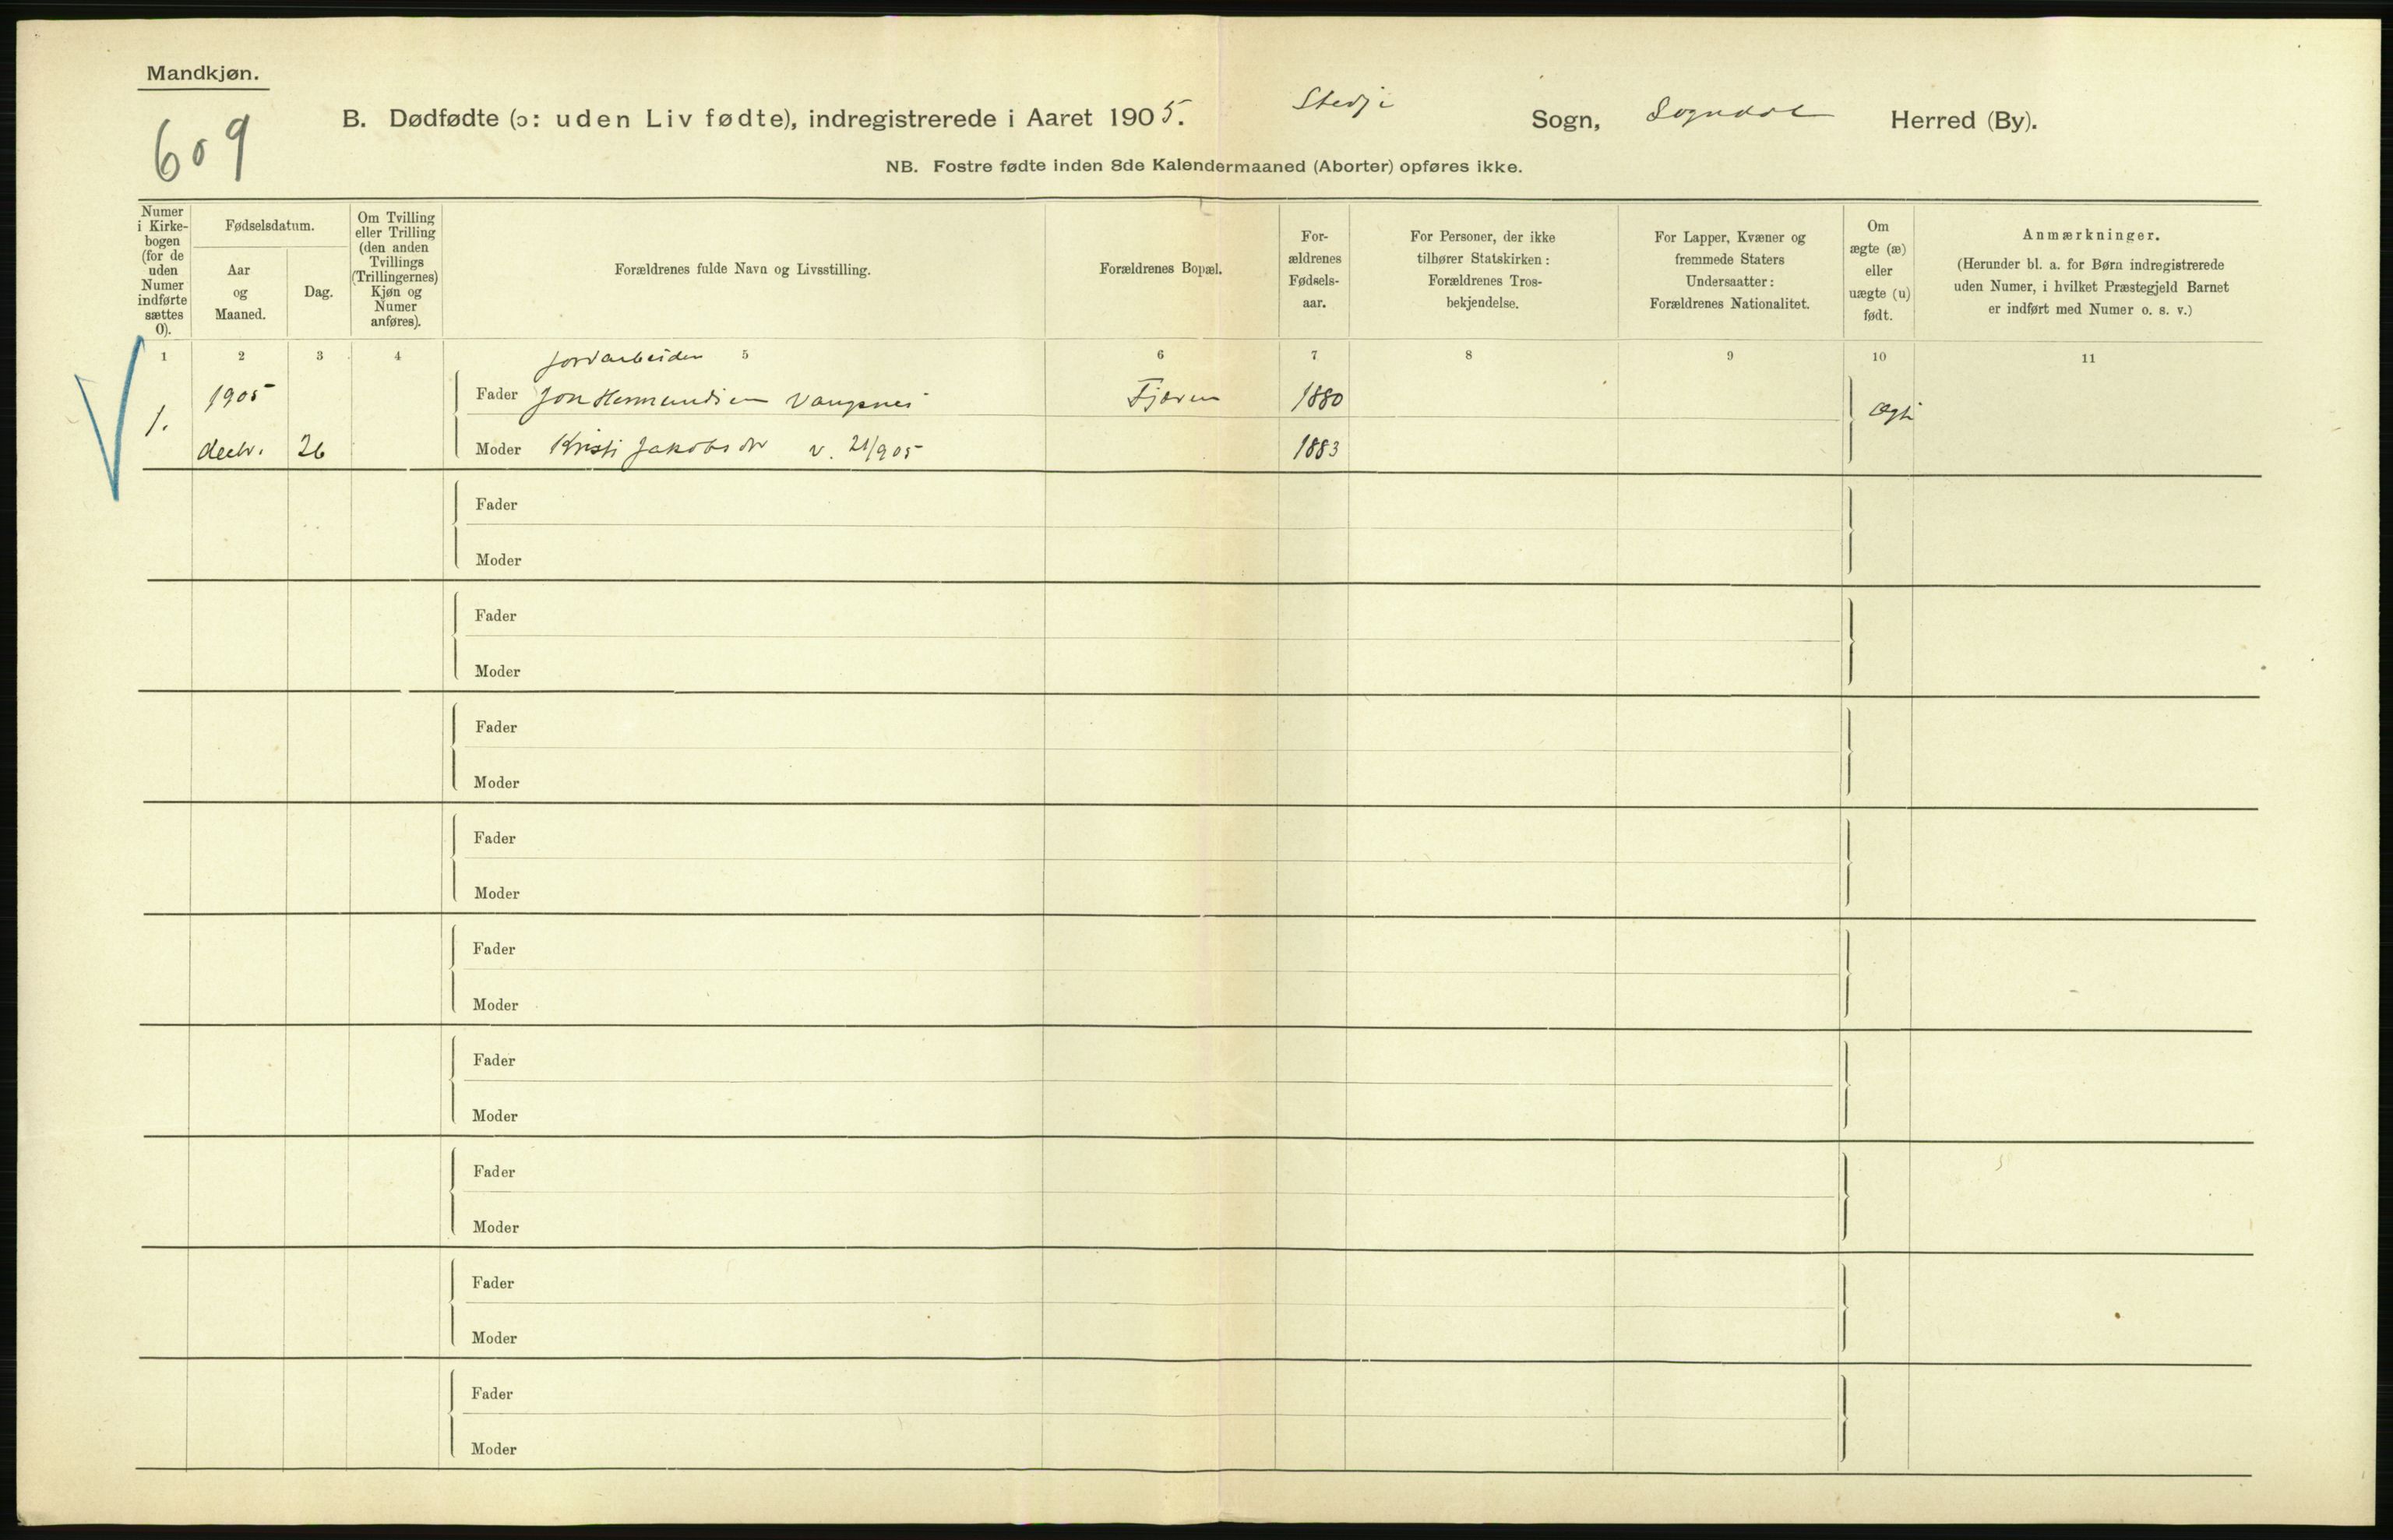 Mandkjøn.
609
B. Dødfødte (ɔ: uden Liv fødte), indregistrerede i Aaret 1905. Stedje Sogn, Sogndal Herred (By).
NB. Fostre fødte inden 8de Kalendermaaned (Aborter) opføres ikke.
Numer
i Kirke-
bogen
(for de
uden
Numer
indførte
sættes
0).
Fødselsdatum.
Aar
og
Maaned.
Dag.
Om Tvilling
eller Trilling
(den anden
Tvillings
(Trillingernes)
Kjøn og
Numer
anføres).
Forældrenes fulde Navn og Livsstilling.
Forældrenes Bopæl.
For-
ældrenes
Fødsels-
aar.
For Personer, der ikke
tilhører Statskirken:
Forældrenes Tros-
bekjendelse.
For Lapper, Kvæner og
fremmede Staters
Undersaatter:
Forældrenes Nationalitet.
Om
ægte (æ)
eller
uægte (u)
født.
Anmærkninger.
(Herunder bl. a. for Børn indregistrerede
uden Numer, i hvilket Præstegjeld Barnet
er indført med Numer o. s. v.)
1 2 3 4 5 6 7 8 9 10 11
Jordarbeider
1. 1905 Fader Jon Hermundsen Vangsnes Fjæren 1880 Ægte
decbr. 26 Moder Kristi Jakobsdr v. 21/905 1883
Fader
Moder
Fader
Moder
Fader
Moder
Fader
Moder
Fader
Moder
Fader
Moder
Fader
Moder
Fader
Moder
Fader
Moder